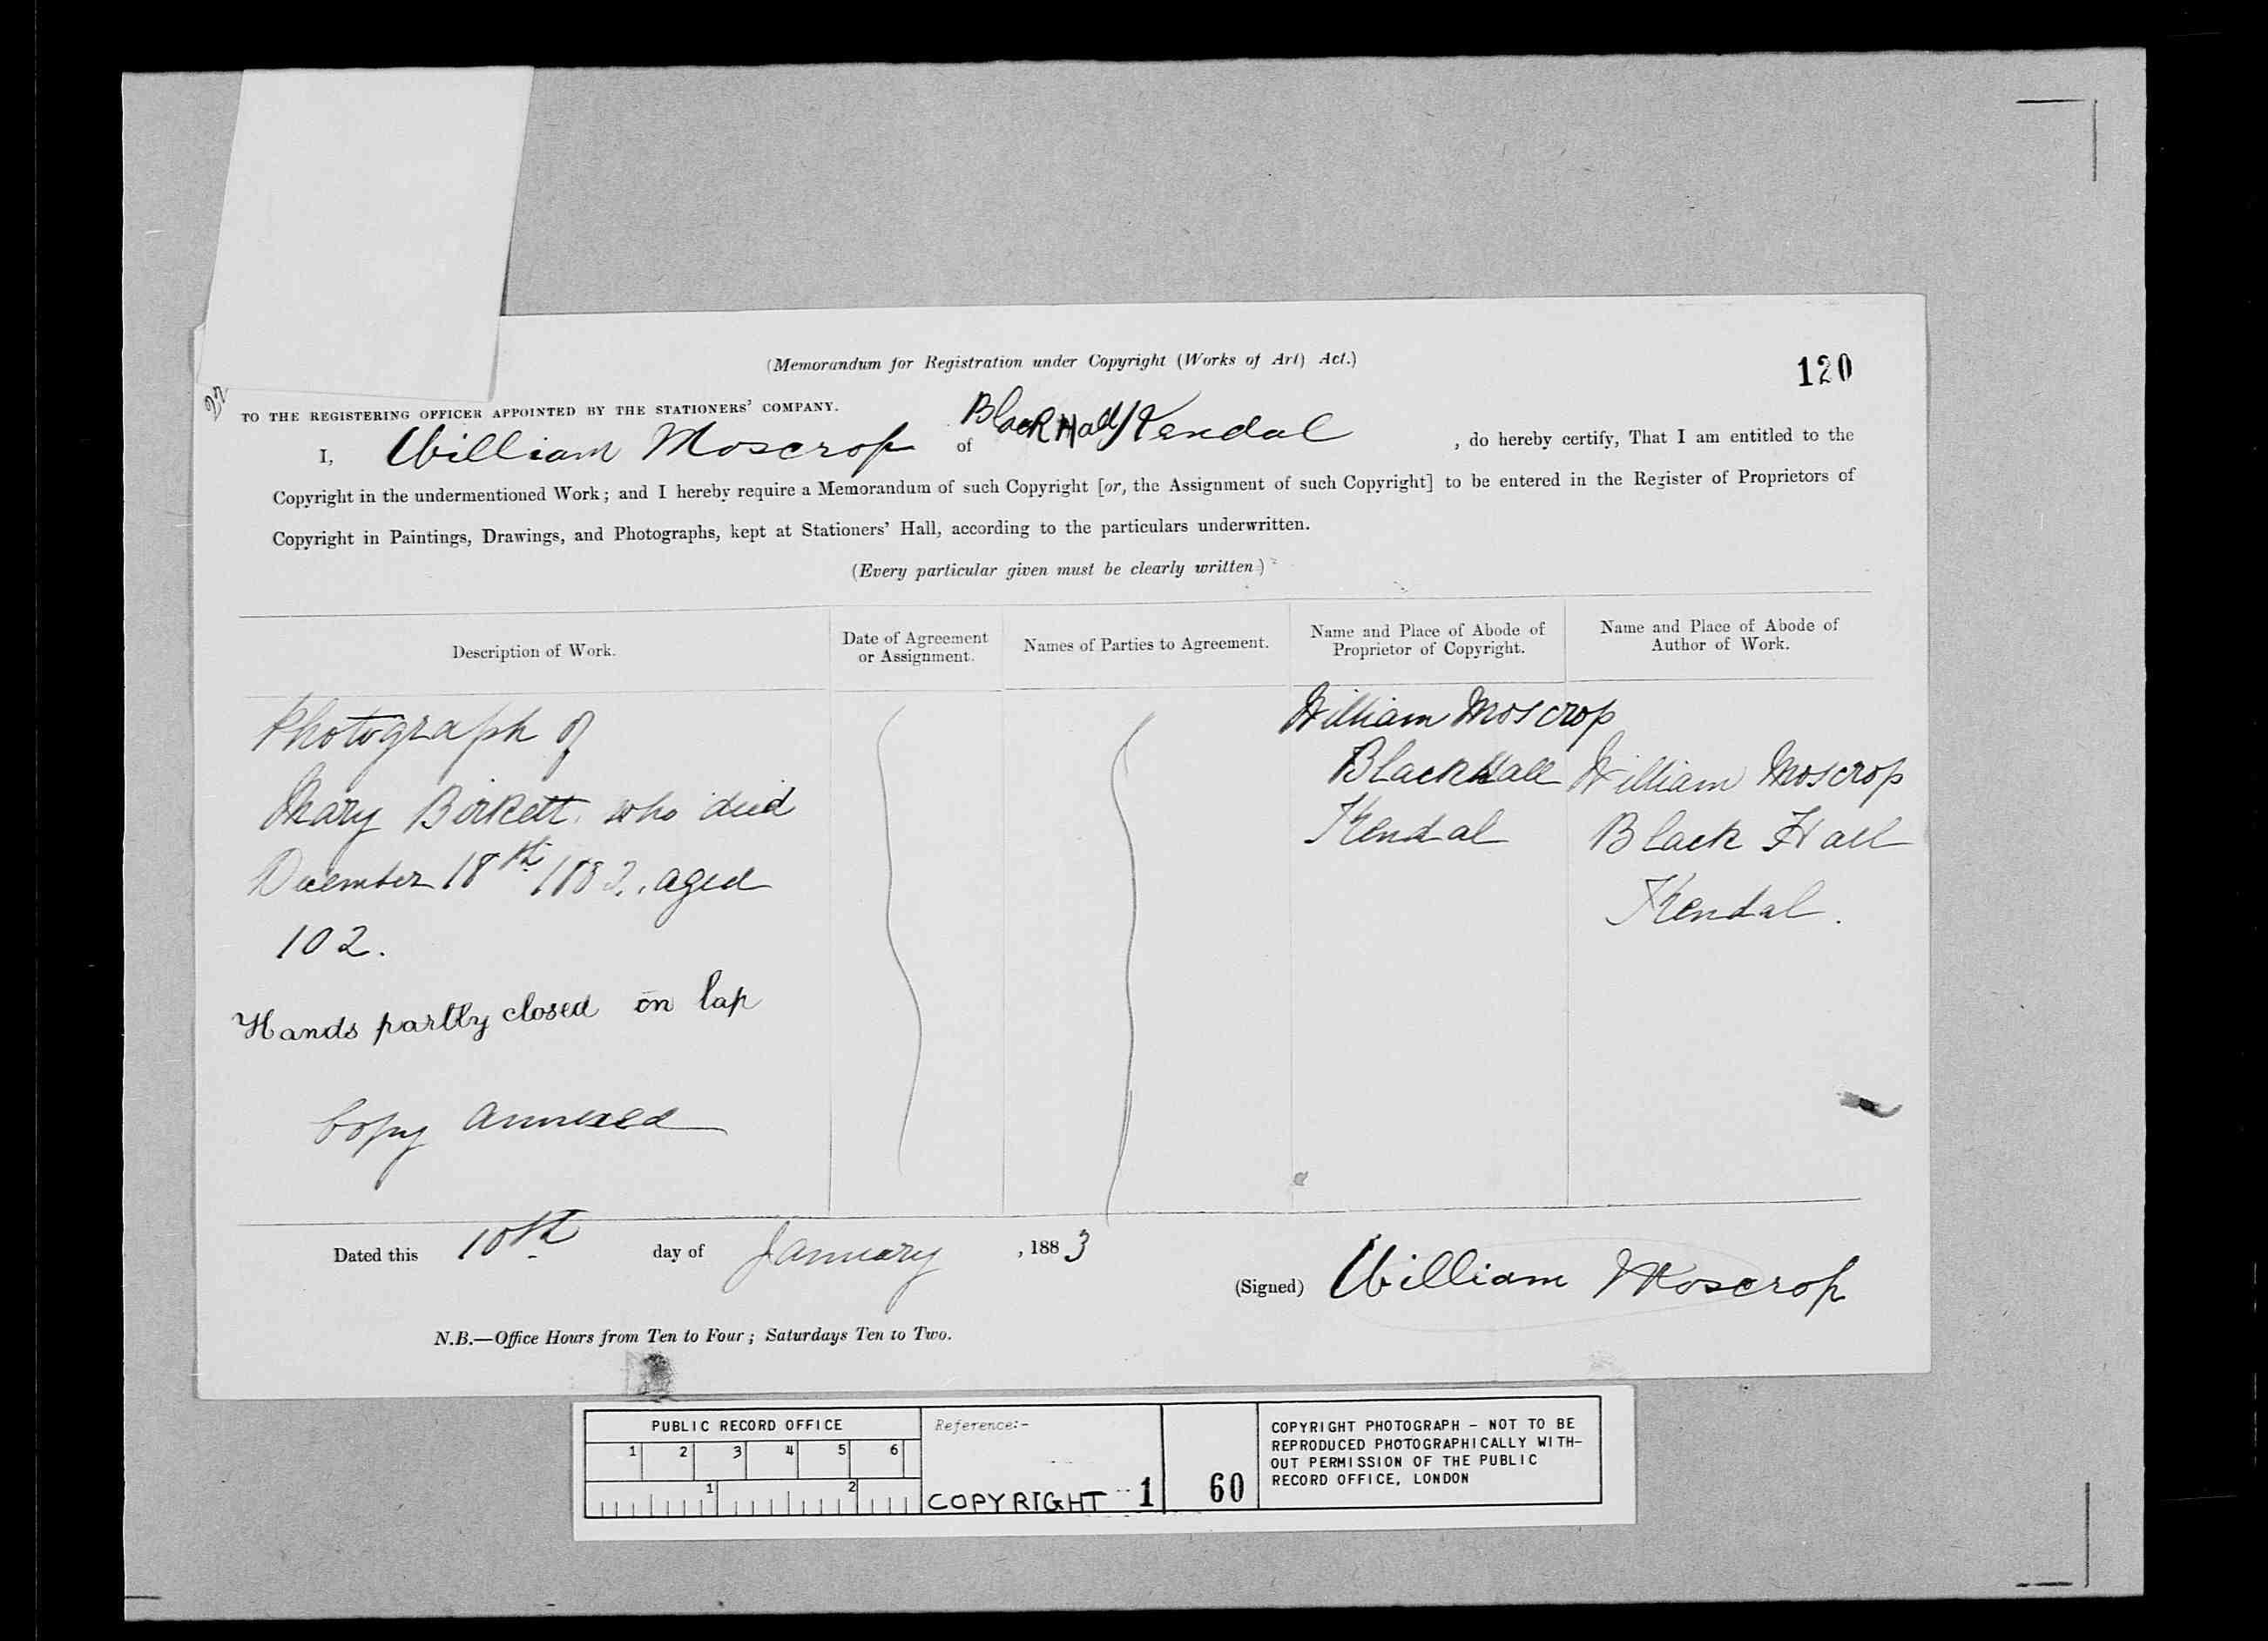 (Memorandum for Registration under Copyright (Works of Art) Act.)
120
TO THE REGISTERING OFFICER APPOINTED BY THE STATIONERS' COMPANY.
I, William Moscrop of Black Hall / Kendal , do hereby certify, That I am entitled to the
Copyright in the undermentioned Work; and I hereby require a Memorandum of such Copyright [or, the Assignment of such Copyright] to be entered in the Register of Proprietors of
Copyright in Paintings, Drawings, and Photographs, kept at Stationers' Hall, according to the particulars underwritten.
(Every particular given must be clearly written.)
Description of Work.
Date of Agreement
or Assignment.
Names of Parties to Agreement.
Name and Place of Abode of
Proprietor of Copyright.
Name and Place of Abode of
Author of Work.
Photograph of
Mary Birkett who died
December 18th aged
102.
Hands partly closed on lap
Copy annexed
William Moscrop
Black Hall
Kendal
William Moscrop
Black Hall
Kendal.
Dated this 10th day of January , 1883
(Signed) William Moscrop
N.B.—Office Hours from Ten to Four; Saturdays Ten to Two.
PUBLIC RECORD OFFICE
1 2 3 4 5 6
1 2
Reference:-
COPYRIGHT 1 60
COPYRIGHT PHOTOGRAPH - NOT TO BE
REPRODUCED PHOTOGRAPHICALLY WITH-
OUT PERMISSION OF THE PUBLIC
RECORD OFFICE, LONDON